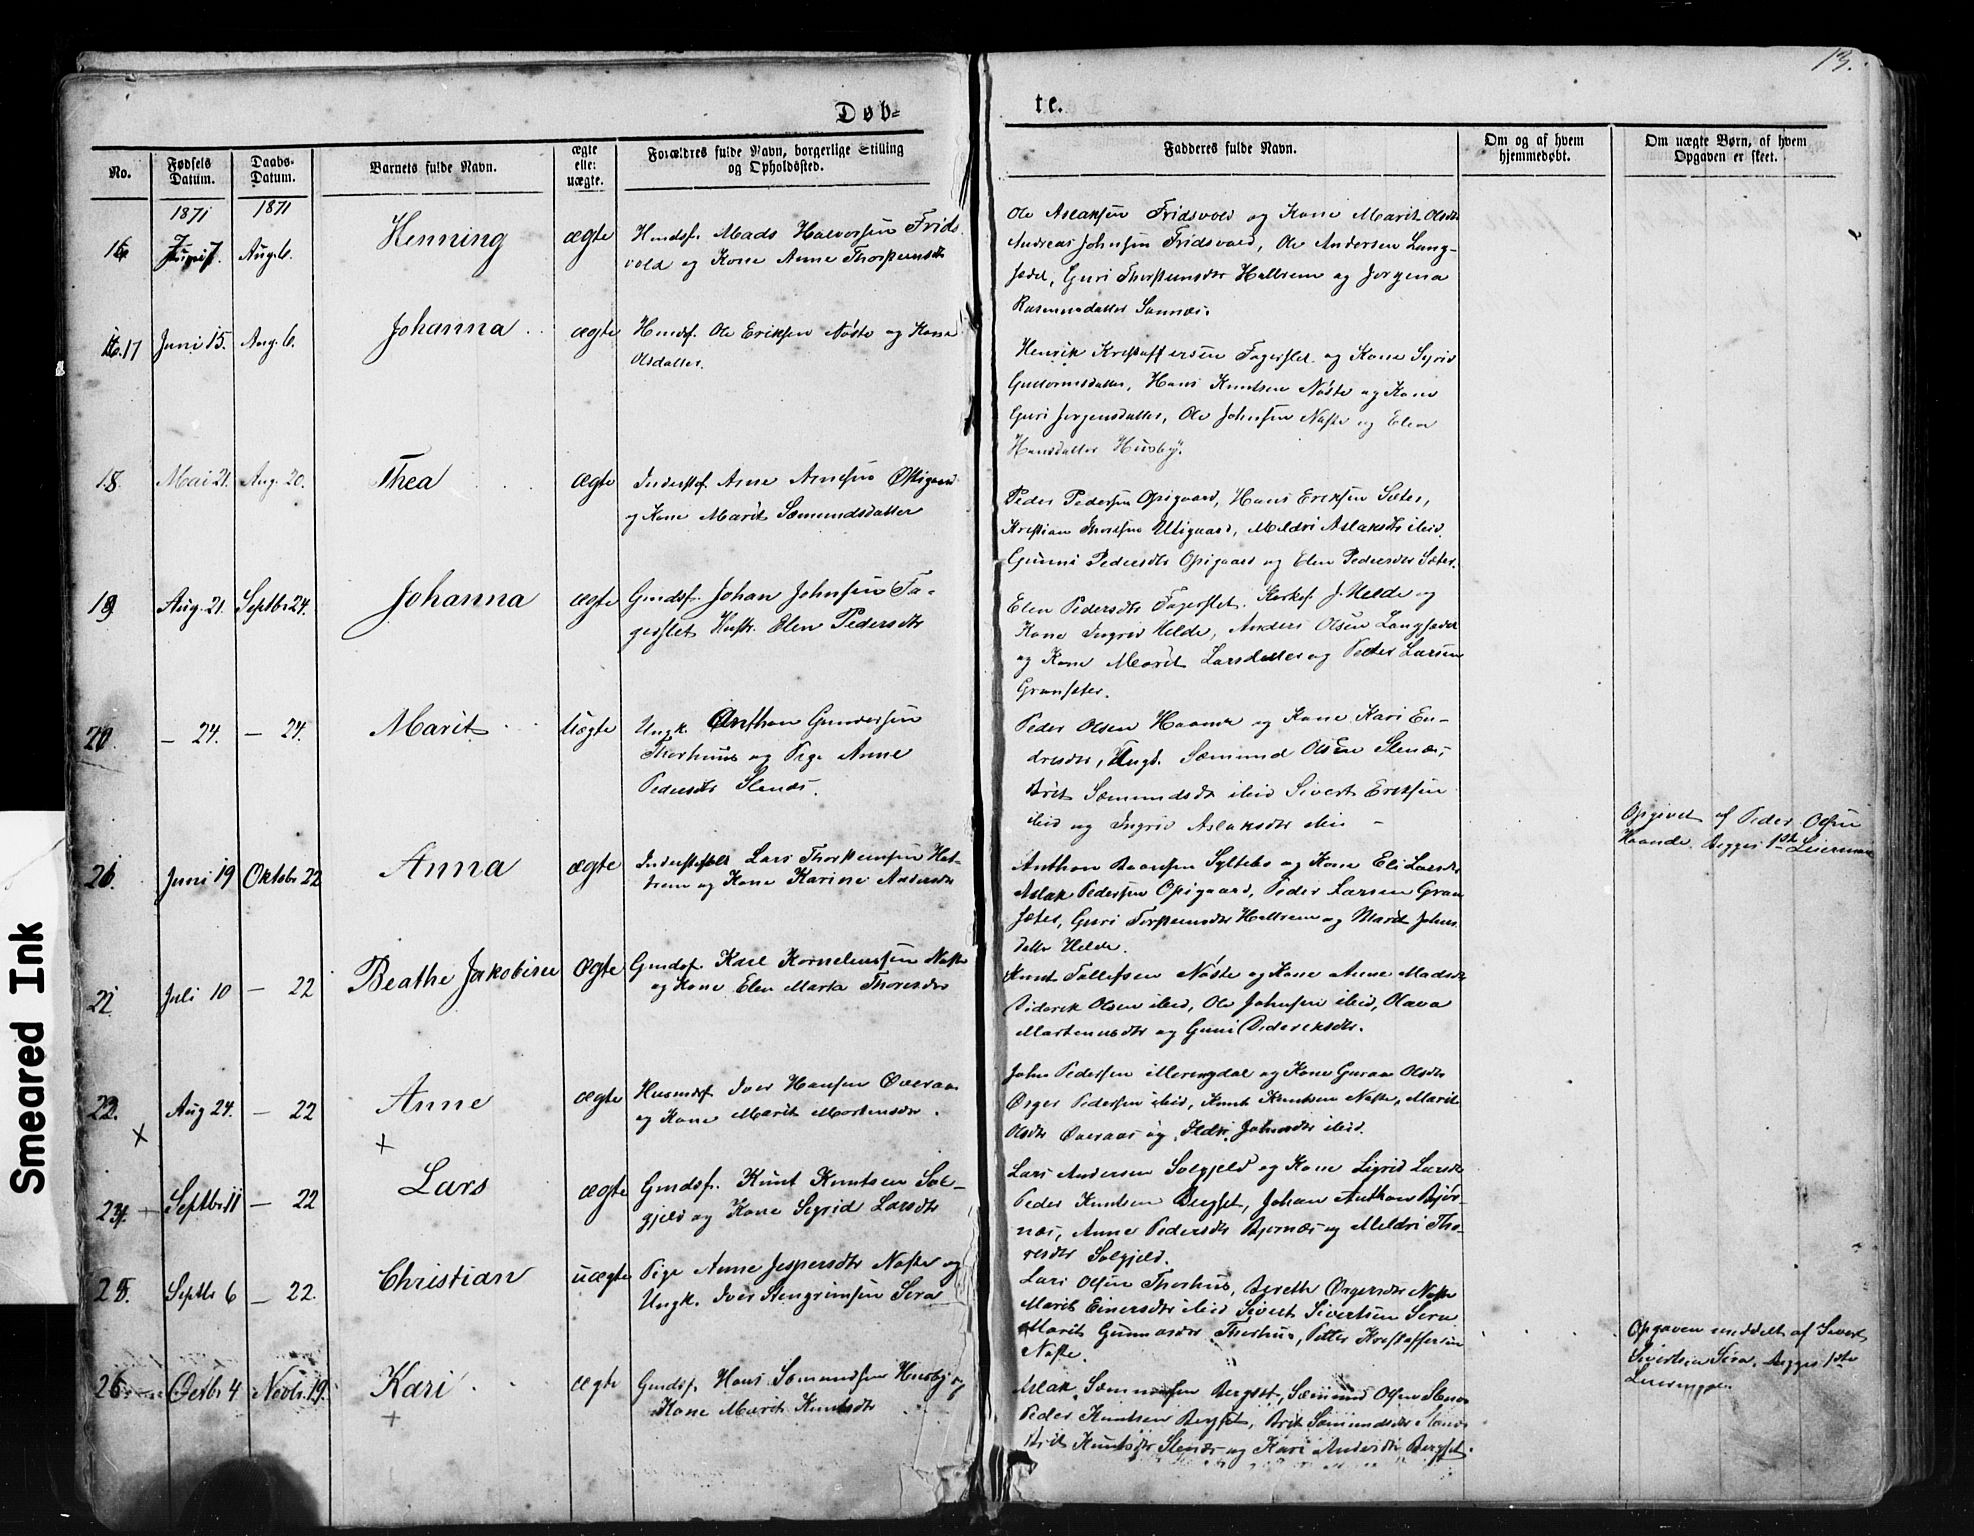 13.
Døb=
te.
No.
Fødsels Datum.
Daabs- Datum.
Barnets fulde Navn.
ægte eller uægte.
Forældres fulde Navn, borgerlige Stilling og Opholdssted.
Fadderes fulde Navn.
Om og af hvem hjemmedøbt.
Om uægte Børn, af hvem Opgaven er skeet.
1871 1871
16 Juni 7. Aug. 6. Henning ægte
Mads Halvorsen Frids
vold og Kone Anne Thorsteinsdtr
Ole Aslaksen Fridsvold og Kone Marit Olsdtr
Andreas Johnsen Fridsvold, Ole Andersen Lang-
sædel, Guri Thorsteinsdtr Heltrem og Jørgena
Rasmusdatter Sannæs.
17 Juni 15. Aug. 6. Johanna ægte
Ole Eriksen Nøste og Kone
Olsdatter.
Henrik Kristoffersen Fagerslet og Kone Sigrid
Guttormsdatter, Hans Knutsen Nøste og Kone
Guri Jørgensdatter, Ole Johnsen Nøste og Elen
Hansdatter Husby.
18. Mai 21. Aug. 20. Thea ægte
Inderstsf. Arne Arnesen
og Kone Marit Sæmundsdatter
Peder Pedersen Opigaard, Hans Eriksen Sæter,
Kristian Thoresen Utigaard, Meldri Aslaksdtr ibid.
Gunni Pedersdtr Opigaard og Elen Pedersdtr Sæter.
19 Aug. 21. Septbr 24. Johanna ægte
Gmdsf. Johan Johnsen Fa-
gerslet Hustr. Elen Pedersdtr
Elen Pedersdtr Fagerslet. Kirkes. J. Helde og
Kone Ingrid Helde, Anders Olsen Langsædel
og Kone Marit Larsdatter og Peter Larsen
Gransæter.
20. — 24. — 24. Marit Uægte
Ungk. Anthon Gundersen
Thorhuus og Pige Anne
Pedersdtr Slenæs.
Peder Olsen Haande og Kone Kari En-
dresdtr, Ungk. Sæmund Olsen Slenæs,
Brit Sæmundsdtr ibid Sivert Eriksen
ibid og Ingrid Aslaksdtr ibid —
Opgivet af Peder Olsen
Haande. Begges 1ste Leiermaal
21. Juni 19 Oktobr 22 Anna ægte
Inderstfolk Lars Thorsteinsen Hel-
trem og Kone Karine Andersdtr
Anthon Baardsen Syltebø og Kone Eli Larsdtr
Aslak Pedersen Opigaard, Peder Larsen Gran
sæter, Guri Torsteinsdtr Heltrem og Marit Johns
datter Helde.
22 Juli 10 — 22 Beathe Jakobine Ægte
Gmdsf. Karl Kornelinssen Nøste
og Kone Elen Marta Thoresdtr
Knut Tollefsen Nøste og Kone Anne Madsdtr
Diderik Olsen ibid, Ole Johnsen ibid, Olava
Martinusdtr og Gunni Dideriksdtr.
22. Aug 24. — 22 Anne ægte
Husmdsf. Iver Hansen Øveraas
og Kone Marit Mortensdtr.
John Pedersen Meringdal og Kone Guraa Olsdtr
Ørger Pedersen ibid, Knut Knutsen Nøste, Marit
Olsdtr Øveraas og Ildri Johnsdtr ibid.
x
x
24. Septbr 11 — 22 Lars ægte
Gmdsf. Knut Knutsen Sol-
gjeld og Kone Sigrid Larsdtr
Lars Andersen Solgjeld og Kone Sigrid Larsdtr
Peder Knutsen Bergset, Johan Anthon Bjør-
næs, Anne Pedersdtr Bjørnæs og Meldri Tho-
resdtr Solgjeld.
25. Septbr 6 — 22. Christian uægte
Pige Anne Jespersdtr Nøste og
Ungk. Iver Stengrimsen Sira
Lars Olsen Thorhus, Bereth Ørgersdtr Nøste
Marit Einersdtr ibid Sivert Sivertsen Sira
Marit Gunnarsdtr Thorhus, Petter Kristoffersen
Nøste.
Opgaven meddelt af Sivert
Sivertsen Sira. Begges 1ste
26. Octbr 4 Novbr. 19. Kari ægte
Gmdsf. Hans Sæmundsen Husby og
Kone Marit Knutsdtr
Aslak Sæmundsen Bergset, Sæmund Olsen Slenæs
Peder Knutsen Bergset, Brit Sæmundsdtr Slenæs
Brit Knutsdtr Slenæs og Kari Andersdtr Bergset.
x
Smeared Ink